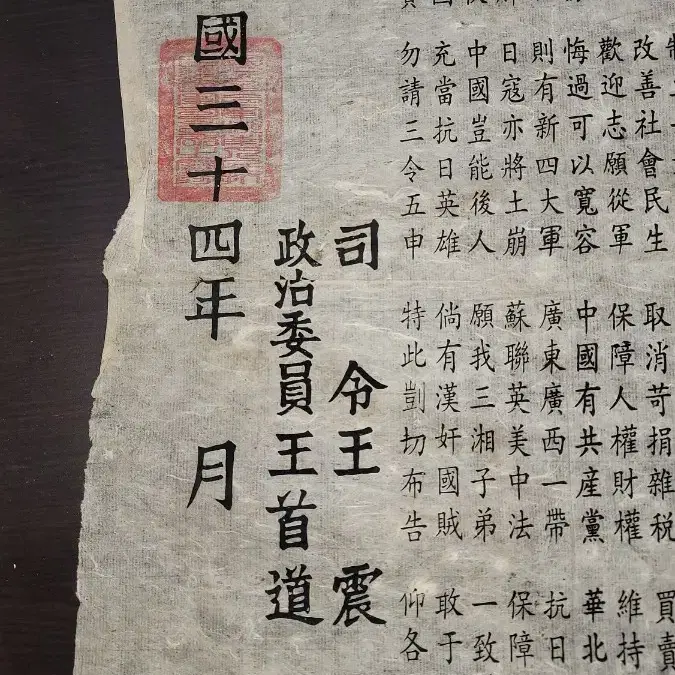 改善社會民生 取消苛捐雜稅 買賣
歡迎志願從軍 保障人權財權 維持
悔過可以寬容 中國有共產黨 華北
則有新四大軍 廣東廣西一帶 抗日
日寇亦將土崩 蘇聯英美中法 保障
中國豈能後人 願我三湘子弟 一致
充當抗日英雄 倘有漢奸國賊 敢于
勿請三令五申 特此剴切布告 仰各
司令王震
政治委員王首道
國三十四年 月